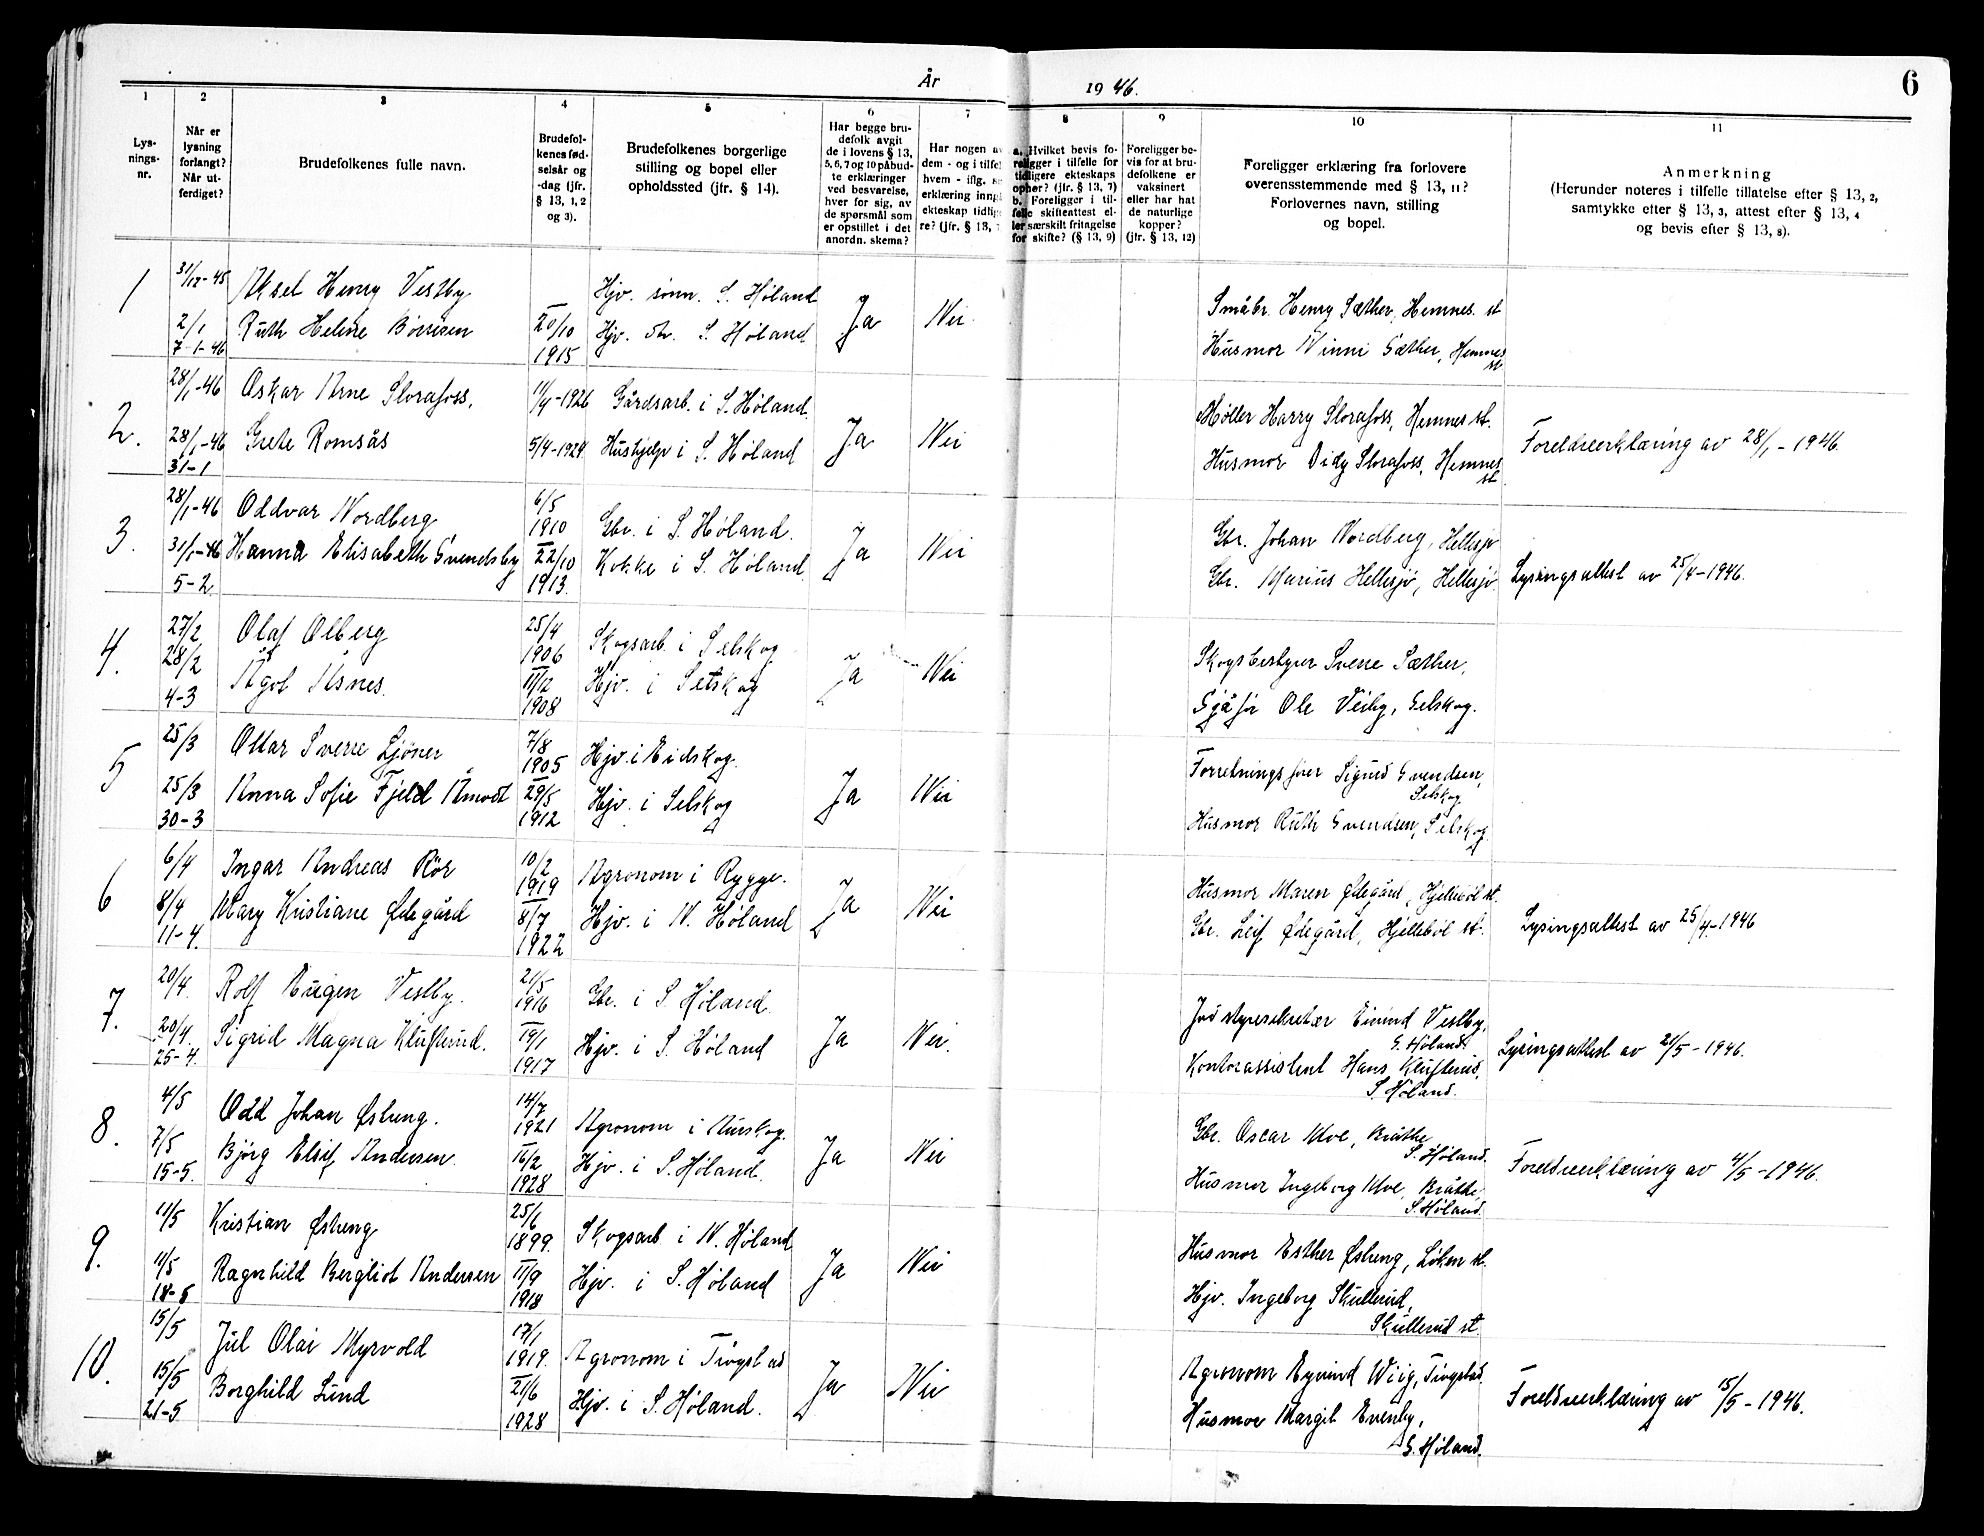 År 1946. 6
1 2 3 4 5 6 7 8 9 10 11
Lys-
nings-
nr.
Når er
lysning
forlangt?
Når ut-
ferdiget?
Brudefolkenes fulle navn.
Brudefol-
kenes fød-
selsår og
-dag (jfr.
§ 13, 1, 2
og 3).
Brudefolkenes borgerlige
stilling og bopel eller
opholdssted (jfr. § 14).
Har begge bru-
defolk avgit
de i lovens § 13,
5, 6, 7 og 10 påbud-
te erklæringer
ved besvarelse,
hver for sig, av
de spørsmål som
er opstillet i det
anordn. skema?
Har nogen av
dem - og i tilfel
hvem - iflg. s
erklæring inng
ekteskap tidlig
re? (jfr. § 13,
a. Hvilket bevis fo-
religger i tilfelle for
tidligere ekteskaps
ophør? (jfr. § 13, 7)
b. Foreligger i til-
felle skifteattest el-
ler særskilt fritagelse
for skifte? (§ 13, 9)
Foreligger be-
vis for at bru-
defolkene er
vaksinert
eller har hat
de naturlige
kopper?
(jfr. § 13, 12)
Foreligger erklæring fra forlovere
overensstemmende med § 13, 11?
Forlovernes navn, stilling
og bopel.
Anmerkning
(Herunder noteres i tilfelle tillatelse efter § 13, 2,
samtykke efter § 13, 3, attest efter § 13, 4
og bevis efter § 13, 8).
1 31/12-45 Aksel Henry Vestby Hjv. sønn. S. Høland Ja Nei Småbr. Henry Sæther, Hemnes st
2/1 Ruth Helene Børresen 20/10 Hjv. dtr. S. Høland Husmor Winni Sæther, Hemnes
7-1-46 1915 st.
28/1-46 Oskar Arne Slorafoss, 11/4-1926 Gårdsarb. i S. Høland. Møller Harry Slorafoss, Hemnes st.
2. 28/1-46 Grete Romsås 5/4-1924 Hushjelp i S. Høland Ja Nei Husmor Didy Slorafoss, Hemnes Foreldreerklæring av 28/1-1946.
31-1 st.
28/1-46 Oddvar Nordberg 6/5 1910 Gbr. i S. Høland. Gbr. Johan Nordberg, Hellesjø
3. 31/1-46 Hanna Elisabeth Svendsby 22/10 Kokke i S. Høland Ja Nei Gbr. Marius Hellesjø, Hellesjø. Lysingsattest av 25/4-1946.
5-2 1913.
27/2 Olaf Olberg 25/4 1906 Skogsarb. i Setskog Skogsbestyrer Sverre Sæther,
4. 28/2 Ågot Åsnes. 11/12 Hjv. i Setskog Ja Nei Sjåfør Ole Veiby, Setskog.
4-3 1908
25/3 Ottar Sverre Sjøner 7/8 1905 Hjv. i Eidskog. Forretningsfører Sigurd Svendsen,
Setskog
5 25/3 Anna Sofie Fjeld Åmodt 29/5 Hjv. i Setskog Ja Nei Husmor Ruth Svendsen, Setskog
30-3 1912
6/4 Ingar Andreas Rör 10/2 1919 Agronom i Rygge. Husmor Maren Ødegård, Hjellebøl st.
6 8/4 Mary Kristiane Ødegård 8/7 Hjv. i N. Høland Ja Nei Gbr. Leif Ødegård, Hjellebøl st. Lysingsattest av 25/4-1946
11-4. 1922
20/4. Rolf Eugen Vestby. 21/5 1916 Gbr. i S. Høland. Jordstyresekretær Eivind Vestby,
S. Høland.
7. 20/4. Sigrid Magna Kluften​rud. 19/1 Hjv. i S. Høland Ja Nei. Kontorassistent Hans Kluftenrud, Lysingsattest av 21/5-1946.
25-4. 1917 S. Høland.
4/5 Odd Johan Østeng. 14/7 1921 Agronom i Aurskog. Gbr. Oscar Moe, Bråthe
S. Høland.
8. 7/5 Bjørg Elsif Andersen. 16/2 Hjv. i S. Høland. Ja Nei Husmor Ingeborg Moe, Bråthe, Foreldreerklæring av 4/5-1946.
15-5. 1928 S. Høland.
11/5 Kristian Østeng 25/6 1899. Skogsarb i N. Høland Husmor Esther Østeng, Løken st.
9. 11/5 Ragnhild Bergliot Andersen 11/9 Hjv. i S. Høland Ja Nei Hjv. Ingeborg Skullerud,
18-5 1918 Skullerud st.
15/5 Jul Olai Myrvold 17/1 1919. Agronom i Trøgstad Agronom Eyvind Wiig, Trøgstad.
10. 15/5 Borghild Lund 21/6 Hjv. i S. Høland. Ja Nei Husmor Margit Evenby, Foreldreerklæring av 15/5-1946.
21-5 1928 S. Høland.